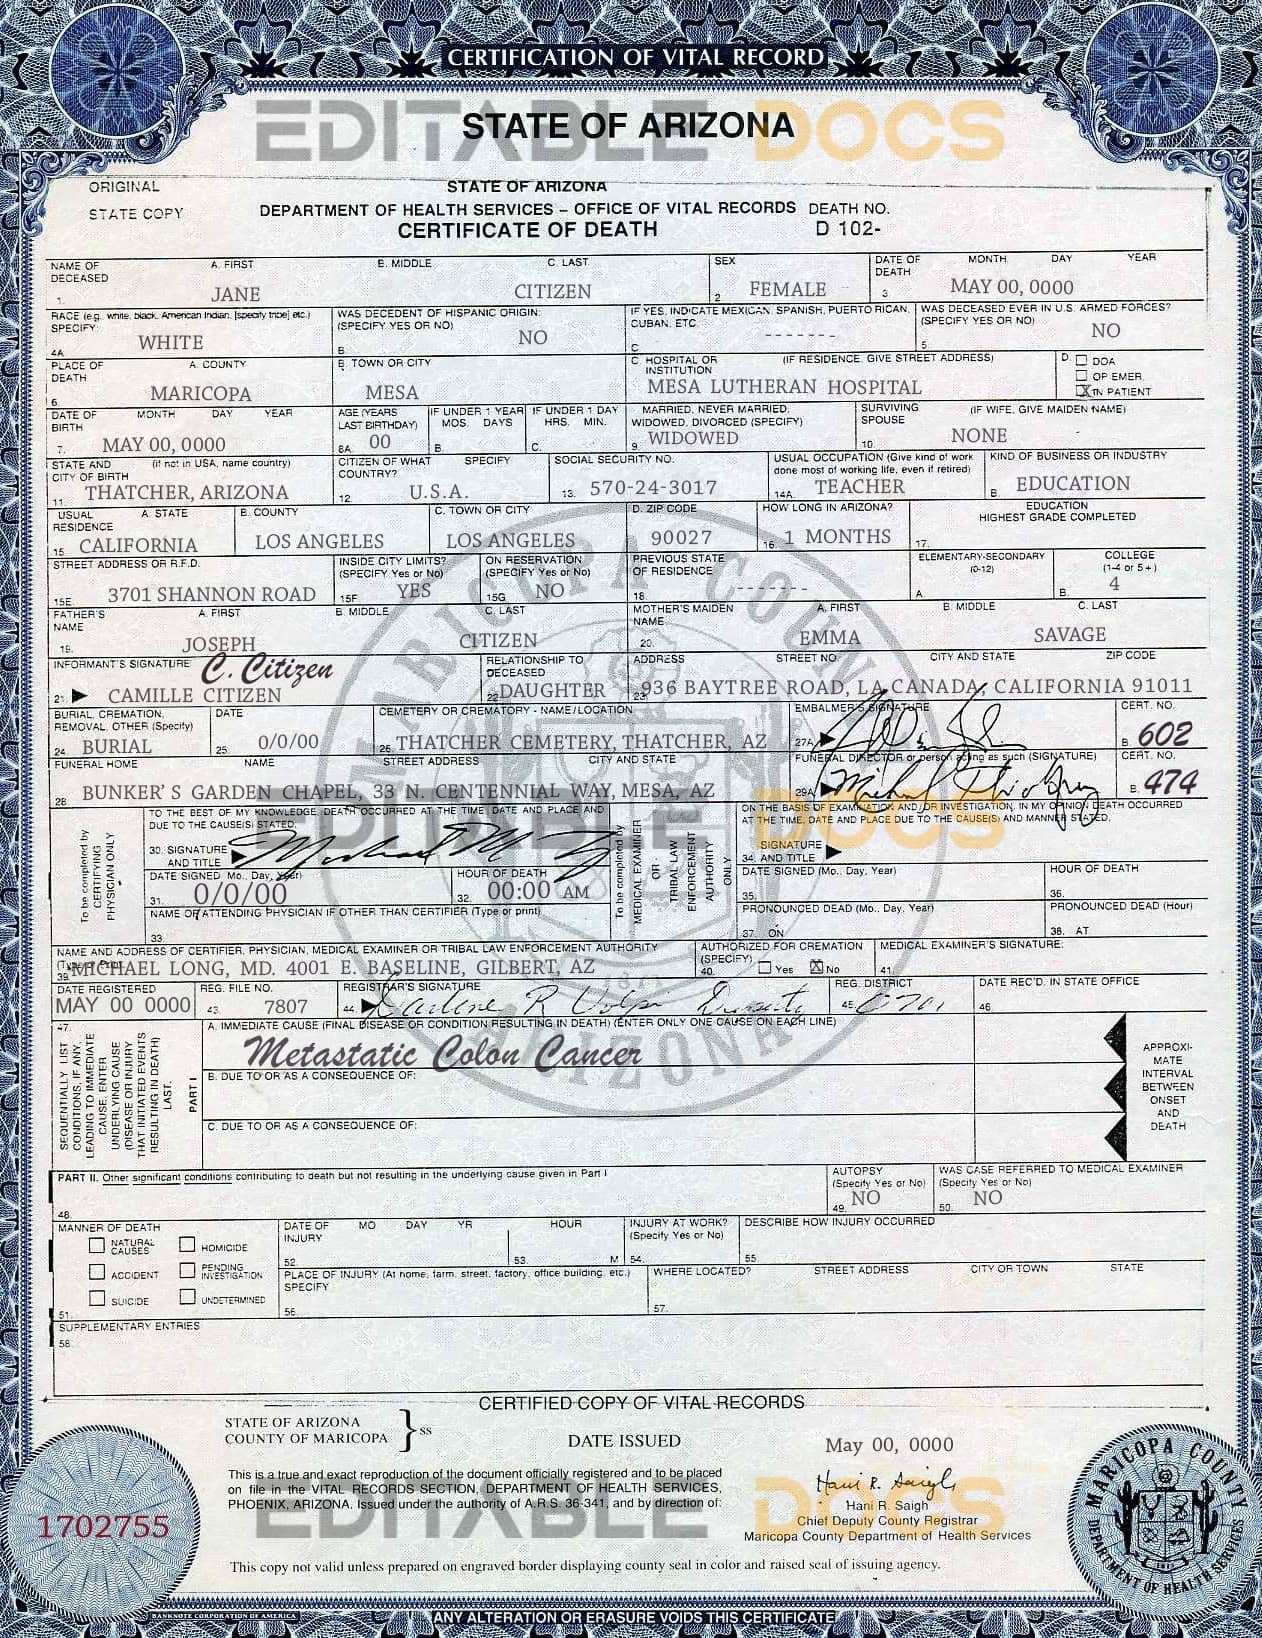 CERTIFICATION OF VITAL RECORD
EDITABLE DOCS
STATE OF ARIZONA
ORIGINAL
STATE COPY
STATE OF ARIZONA
DEPARTMENT OF HEALTH SERVICES – OFFICE OF VITAL RECORDS DEATH NO.
CERTIFICATE OF DEATH D 102-
NAME OF DECEASED A. FIRST B. MIDDLE C. LAST SEX DATE OF DEATH MONTH DAY YEAR
1. JANE CITIZEN 2 FEMALE 3 MAY 00, 0000
RACE (e.g. white, black, American Indian, [specify tribe] etc.) SPECIFY: WAS DECEDENT OF HISPANIC ORIGIN: (SPECIFY YES OR NO) IF YES, INDICATE MEXICAN, SPANISH, PUERTO RICAN, CUBAN, ETC WAS DECEASED EVER IN U.S. ARMED FORCES? (SPECIFY YES OR NO)
4A WHITE B. NO C ------- 5 NO
PLACE OF DEATH A. COUNTY B. TOWN OR CITY C. HOSPITAL OR INSTITUTION (IF RESIDENCE, GIVE STREET ADDRESS) D. DOA
OP EMER.
6 MARICOPA MESA MESA LUTHERAN HOSPITAL X IN PATIENT
DATE OF BIRTH MONTH DAY YEAR AGE (YEARS LAST BIRTHDAY) IF UNDER 1 YEAR MOS. DAYS IF UNDER 1 DAY HRS. MIN. MARRIED, NEVER MARRIED, WIDOWED, DIVORCED (SPECIFY) SURVIVING SPOUSE (IF WIFE, GIVE MAIDEN NAME)
7. MAY 00, 0000 8A. 00 B. C. 9. WIDOWED 10. NONE
STATE AND CITY OF BIRTH (if not in USA, name country) CITIZEN OF WHAT COUNTRY? SPECIFY SOCIAL SECURITY NO. USUAL OCCUPATION (Give kind of work done most of working life, even if retired) KIND OF BUSINESS OR INDUSTRY
11 THATCHER, ARIZONA 12 U.S.A. 13. 570-24-3017 14A. TEACHER B EDUCATION
USUAL RESIDENCE A. STATE B. COUNTY C. TOWN OR CITY D. ZIP CODE HOW LONG IN ARIZONA? EDUCATION HIGHEST GRADE COMPLETED
15. CALIFORNIA LOS ANGELES LOS ANGELES 90027 16. 1 MONTHS 17.
STREET ADDRESS OR R.F.D. INSIDE CITY LIMITS? (SPECIFY Yes or No) ON RESERVATION (SPECIFY Yes or No) PREVIOUS STATE OF RESIDENCE ELEMENTARY-SECONDARY (0-12) COLLEGE (1-4 or 5+)
15E 3701 SHANNON ROAD 15F YES 15G NO 18. ------- A. B. 4
FATHER'S NAME A. FIRST B. MIDDLE C. LAST MOTHER'S MAIDEN NAME A. FIRST B. MIDDLE C. LAST
19. JOSEPH CITIZEN 20. EMMA SAVAGE
INFORMANT'S SIGNATURE C. Citizen RELATIONSHIP TO DECEASED ADDRESS STREET NO. CITY AND STATE ZIP CODE
21. CAMILLE CITIZEN 22 DAUGHTER 23. 936 BAYTREE ROAD, LA CANADA, CALIFORNIA 91011
BURIAL, CREMATION, REMOVAL, OTHER (Specify) DATE CEMETERY OR CREMATORY - NAME/LOCATION EMBALMER'S SIGNATURE CERT. NO.
24. BURIAL 25. 0/0/00 26. THATCHER CEMETERY, THATCHER, AZ 27A B. 602
FUNERAL HOME NAME STREET ADDRESS CITY AND STATE FUNERAL DIRECTOR or person acting as such (SIGNATURE) CERT. NO.
28 BUNKER' S GARDEN CHAPEL, 33 N. CENTENNIAL WAY, MESA, AZ 29A B. 474
EDITABLE DOCS
To be completed by CERTIFYING PHYSICIAN ONLY
TO THE BEST OF MY KNOWLEDGE, DEATH OCCURRED AT THE TIME, DATE AND PLACE AND DUE TO THE CAUSE(S) STATED.
30. SIGNATURE AND TITLE
DATE SIGNED (Mo., Day, Year) HOUR OF DEATH
31. 0/0/00 32. 00:00 AM
NAME OF ATTENDING PHYSICIAN IF OTHER THAN CERTIFIER (Type or print)
33
To be completed by MEDICAL EXAMINER OR TRIBAL LAW ENFORCEMENT AUTHORITY ONLY
ON THE BASIS OF EXAMINATION AND/OR INVESTIGATION, IN MY OPINION DEATH OCCURRED AT THE TIME, DATE AND PLACE DUE TO THE CAUSE(S) AND MANNER STATED.
34. SIGNATURE AND TITLE
DATE SIGNED (Mo., Day, Year) HOUR OF DEATH
35. 36.
PRONOUNCED DEAD (Mo., Day, Year) PRONOUNCED DEAD (Hour)
37. ON 38. AT
NAME AND ADDRESS OF CERTIFIER, PHYSICIAN, MEDICAL EXAMINER OR TRIBAL LAW ENFORCEMENT AUTHORITY AUTHORIZED FOR CREMATION (SPECIFY) MEDICAL EXAMINER'S SIGNATURE:
39 MICHAEL LONG, MD. 4001 E. BASELINE, GILBERT, AZ 40. Yes X No 41.
DATE REGISTERED REG. FILE NO. REGISTRAR'S SIGNATURE REG. DISTRICT DATE REC'D. IN STATE OFFICE
MAY 00 0000 43. 7807 44. 45. 0701 46
47. SEQUENTIALLY LIST CONDITIONS, IF ANY, LEADING TO IMMEDIATE CAUSE. ENTER UNDERLYING CAUSE (DISEASE OR INJURY THAT INITIATED EVENTS RESULTING IN DEATH) LAST.
PART I
A. IMMEDIATE CAUSE (FINAL DISEASE OR CONDITION RESULTING IN DEATH) (ENTER ONLY ONE CAUSE ON EACH LINE)
Metastatic Colon Cancer
B. DUE TO OR AS A CONSEQUENCE OF:
C. DUE TO OR AS A CONSEQUENCE OF:
APPROXI-
MATE
INTERVAL
BETWEEN
ONSET
AND
DEATH
PART II. Other significant conditions contributing to death but not resulting in the underlying cause given in Part I AUTOPSY (Specify Yes or No) WAS CASE REFERRED TO MEDICAL EXAMINER (Specify Yes or No)
48. 49. NO 50. NO
MANNER OF DEATH DATE OF INJURY MO DAY YR HOUR INJURY AT WORK? (Specify Yes or No) DESCRIBE HOW INJURY OCCURRED
NATURAL CAUSES HOMICIDE 52. 53. M 54. 55
ACCIDENT PENDING INVESTIGATION PLACE OF INJURY (At home, farm, street, factory, office building, etc.) SPECIFY WHERE LOCATED? STREET ADDRESS CITY OR TOWN STATE
51. SUICIDE UNDETERMINED 56. 57.
SUPPLEMENTARY ENTRIES
58.
MARICOPA COUNTY
ARIZONA
CERTIFIED COPY OF VITAL RECORDS
STATE OF ARIZONA
COUNTY OF MARICOPA } ss
DATE ISSUED May 00, 0000
This is a true and exact reproduction of the document officially registered and to be placed
on file in the VITAL RECORDS SECTION, DEPARTMENT OF HEALTH SERVICES,
PHOENIX, ARIZONA. Issued under the authority of A.R.S. 36-341, and by direction of:
Hani R. Saigh
Hani R. Saigh
Chief Deputy County Registrar
Maricopa County Department of Health Services
EDITABLE DOCS
1702755
MARICOPA COUNTY
DEPARTMENT OF HEALTH SERVICES
This copy not valid unless prepared on engraved border displaying county seal in color and raised seal of issuing agency.
BANKNOTE CORPORATION OF AMERICA
ANY ALTERATION OR ERASURE VOIDS THIS CERTIFICATE